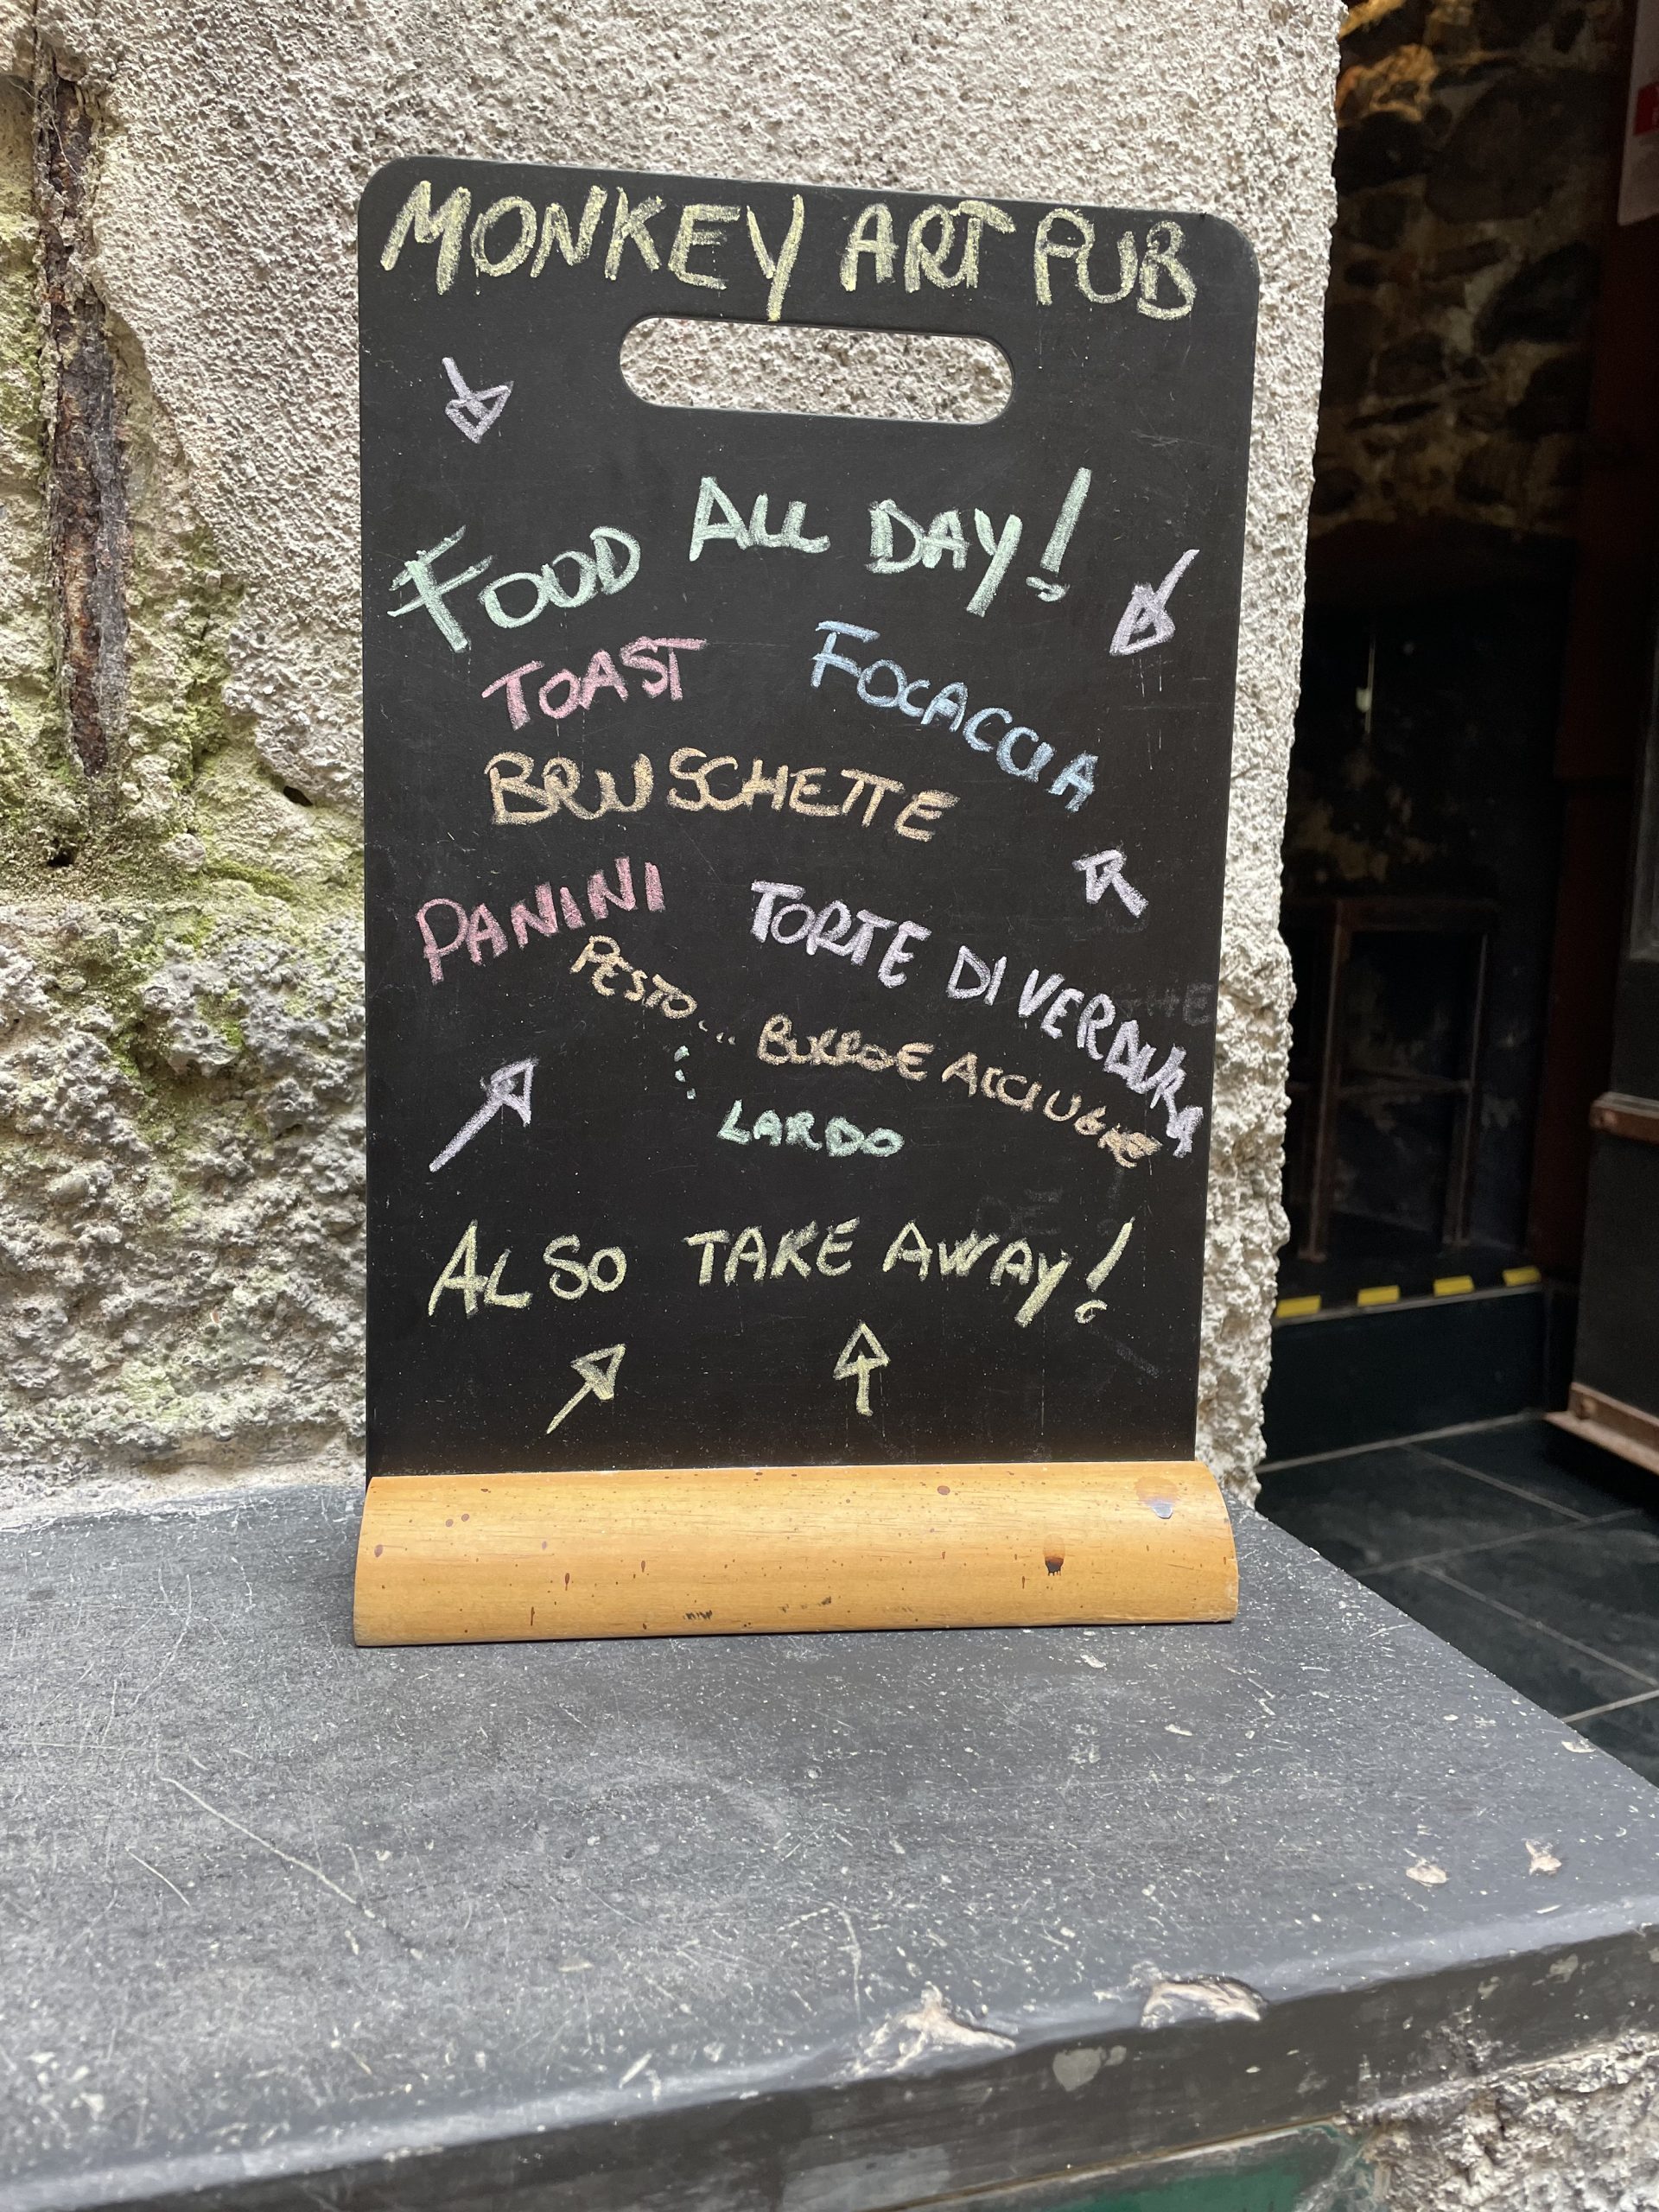 MONKEY ART PUB
FOOD ALL DAY!
TOAST FOCACCIA
BRUSCHETTE
PANINI TORTE DI VERDURA
PESTO... BURRO E ACCIUGHE
LARDO
ALSO TAKE AWAY!